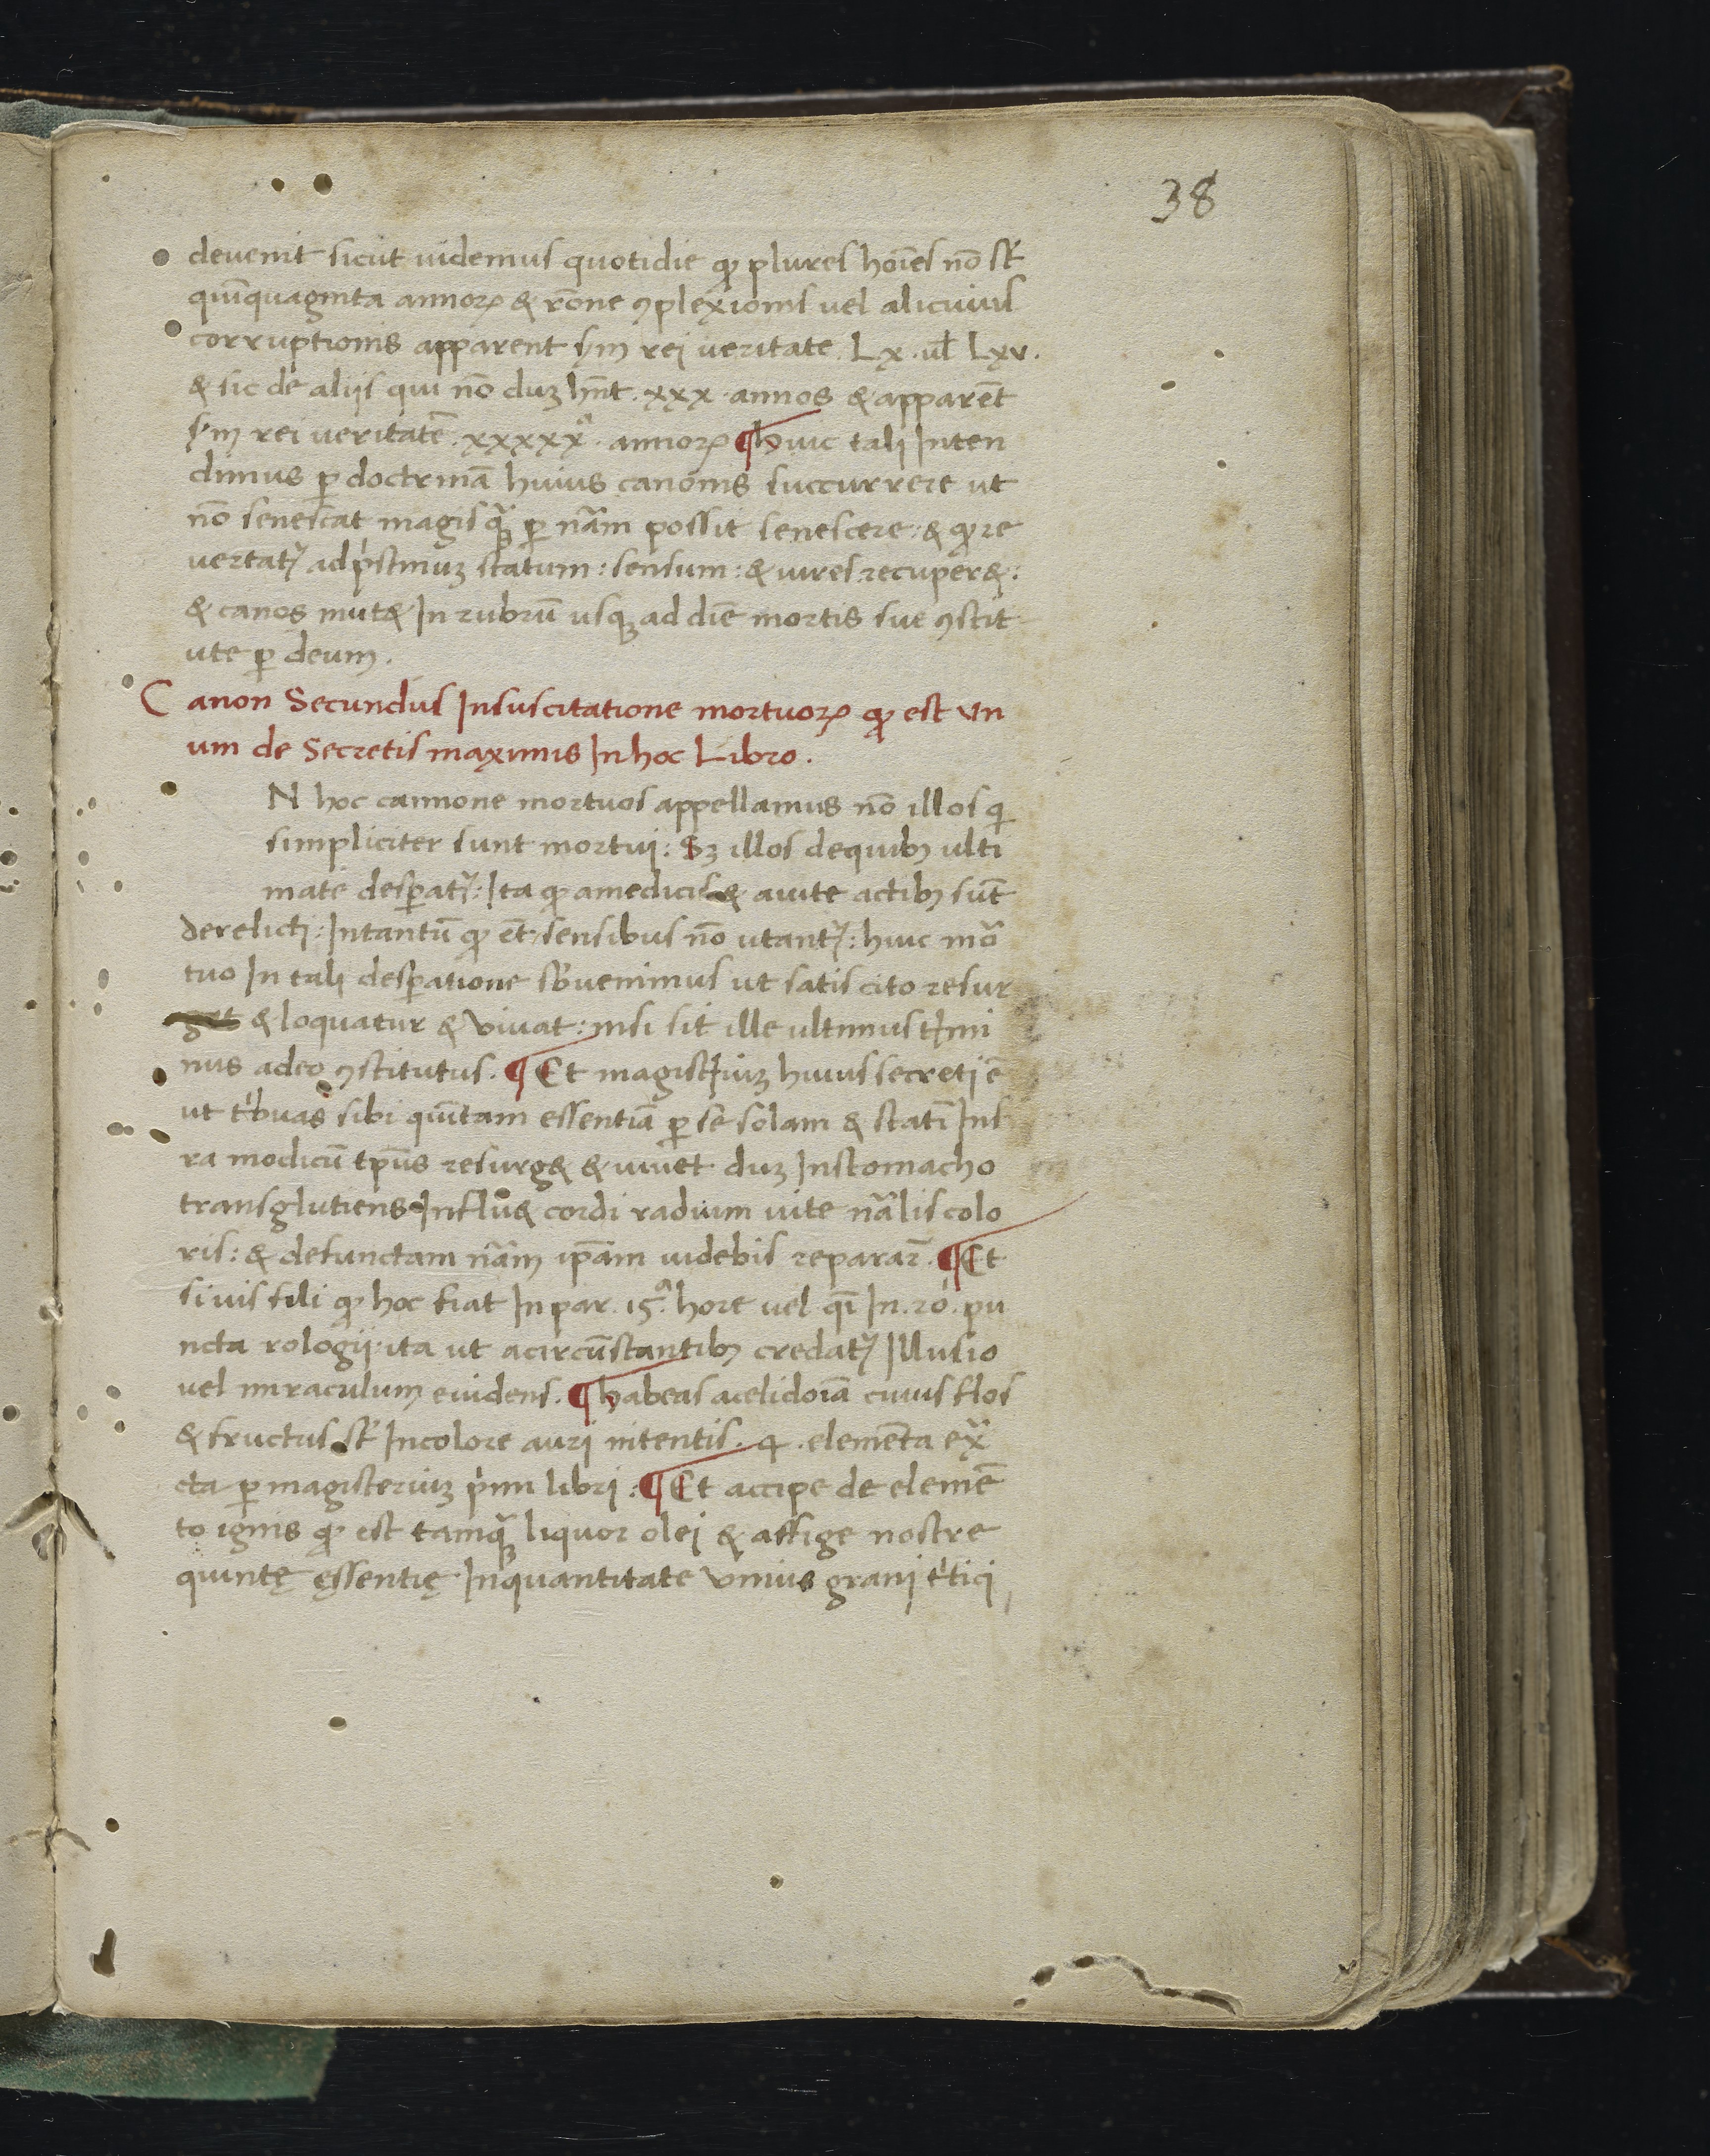 38
deuenit sicut uidemus quotidie qͦ plures hoīes nō st̄
quīquaginta annoꝝ & rōne ꝯplexionis vel alicuius
corruptionis apparent sm rei ueritate Lx. ul Lxv.
& sic de aliis qui nō duꝫ hn̄t . xxx . annos & apparēt
sm rei ueritatē . xxxxxᵃ . annoꝝ ¶ huic tali Inten
dimus ꝑ doctrinā huius canonis succurrere ut
nō senescat magis qꝫ ꝑ nām possit senescere : & qͦ re
uertatʳ ad pͥstinuꝫ statum : sensum : & uires recuper& :
& canos mut& In rubrū usqꝫ ad diē mortis sue ꝯstit
ute ꝑ deum .
Canon Secundus Insuscitatione mortuoꝝ qͦ est vn
um de Secretis maximis In hoc Libro .
N hoc cannone mortuos appellamus nō illos qͥ
simpliciter sunt mortui : Sꝫ illos dequibꝫ ulti
mate desꝑatʳ : Ita qͦ amedicis & auite actibꝫ sūt
derelicti : Intantū qͦ et̄ sensibus nō utantʳ : huic moͬ
tuo In tali desꝑatione sb̄uenimus ut satis cito resur
get & loquatur & viuat : nisi sit ille ultimus tͥmi
nus adeo ꝯstitutus . ¶ Et magistͥiuꝫ huius secreti ē
ut tͥbuas sibi quītam essentiā ꝑ se solam & statī Inf
ra modicū tp̄us resurg& & uiuet duꝫ Instomacho
transglutiens Influ& cordi radium uite nāˡis colo
ris : & defunctam nām ip̄am uidebis reparar̄ . ¶ Et
si uis fili qͦ hoc fiat In par . 15ᵃ. hore vel qī In . 20 . pu
ncta rologii . ita ut acircūstantibꝫ credatʳ Illusio
vel miraculum euidens . ¶ habeas acelidoīā cuius flos
& fructus st̄ Incolore auri nitentis . 4 . elemēta exᵃ
cta ꝑ magisteriuꝫ pͥmi libri : ¶ Et accipe de elemē
to ignis qͦ est tamqꝫ liquor olei & affige nostre
quintę ęssentię . Inquantitate vnius grani tͥtici